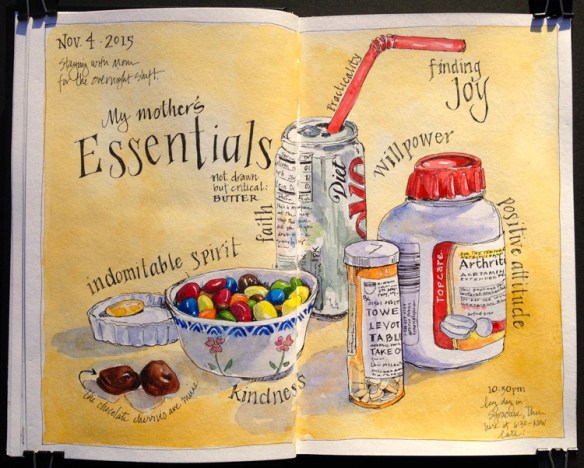 Nov. 4 · 2015
Staying with Mom
for the overnight shift.
My mother's
Essentials
not drawn
but critical:
BUTTER
Practicality
finding
Joy
willpower
faith
positive attitude
indomitable spirit
kindness
the chocolate cherries are mine
Diet
TOPCARE
Arthriti
TOWE
LEVOT
TABL
TAKE O
10:30pm
day in
here at 6:30 - now
late!